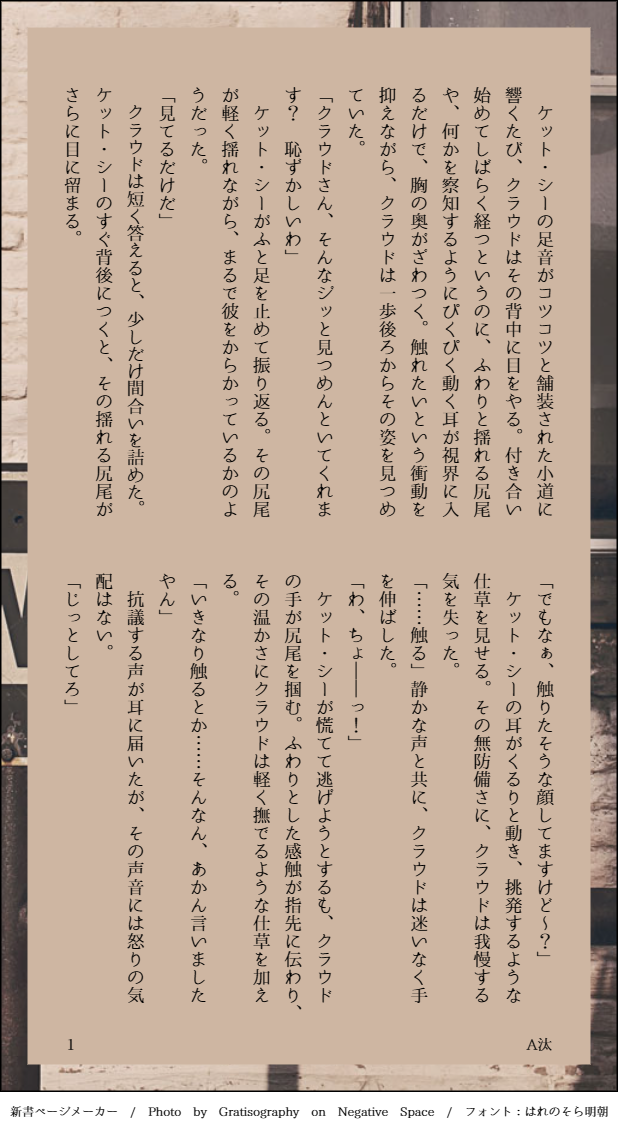 ケット・シーの足音がコツコツと舗装された小道に
響くたび、クラウドはその背中に目をやる。付き合い
始めてしばらく経つというのに、ふわりと揺れる尻尾
や、何かを察知するようにぴくぴく動く耳が視界に入
るだけで、胸の奥がざわつく。触れたいという衝動を
抑えながら、クラウドは一歩後ろからその姿を見つめ
ていた。
「クラウドさん、そんなジッと見つめんといてくれま
す？　恥ずかしいわ」
　ケット・シーがふと足を止めて振り返る。その尻尾
が軽く揺れながら、まるで彼をからかっているかのよ
うだった。
「見てるだけだ」
　クラウドは短く答えると、少しだけ間合いを詰めた。
ケット・シーのすぐ背後につくと、その揺れる尻尾が
さらに目に留まる。
「でもなぁ、触りたそうな顔してますけど～？」
　ケット・シーの耳がくるりと動き、挑発するような
仕草を見せる。その無防備さに、クラウドは我慢する
気を失った。
「……触る」静かな声と共に、クラウドは迷いなく手
を伸ばした。
「わ、ちょ――っ！」
　ケット・シーが慌てて逃げようとするも、クラウド
の手が尻尾を掴む。ふわりとした感触が指先に伝わり、
その温かさにクラウドは軽く撫でるような仕草を加え
る。
「いきなり触るとか……そんなん、あかん言いました
やん」
　抗議する声が耳に届いたが、その声音には怒りの気
配はない。
「じっとしてろ」
1
A汰
新書ページメーカー　/　Photo　by　Gratisography　on　Negative　Space　/　フォント：はれのそら明朝